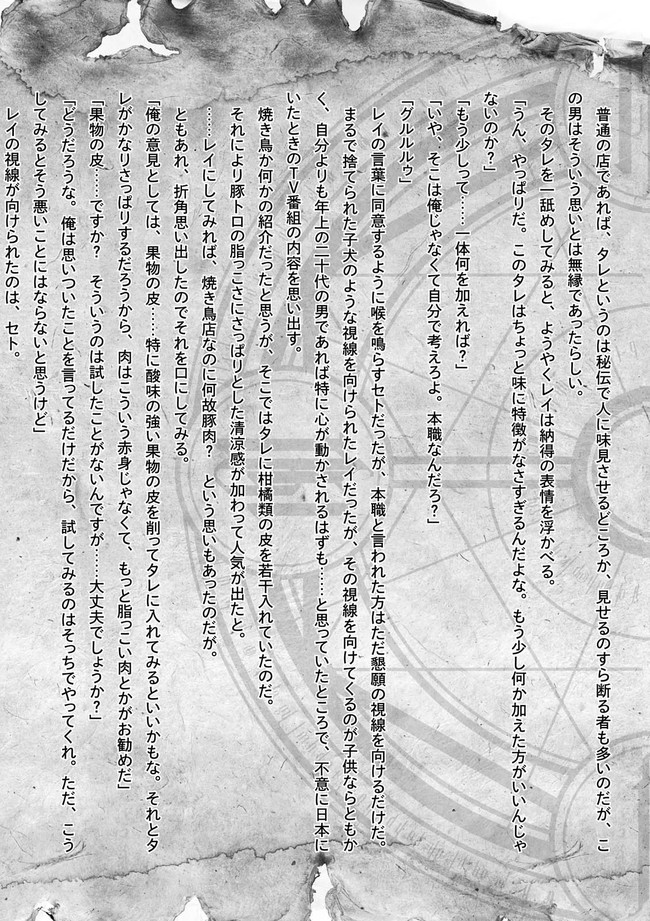 普通の店であれば、タレというのは秘伝で人に味見させるどころか、見せるのすら断る者も多いのだが、こ
の男はそういう思いとは無縁であったらしい。
　そのタレを一舐めしてみると、ようやくレイは納得の表情を浮かべる。
「うん、やっぱりだ。このタレはちょっと味に特徴がなさすぎるんだよな。もう少し何か加えた方がいいんじゃ
ないのか？」
「もう少しって……一体何を加えれば？」
「いや、そこは俺じゃなくて自分で考えろよ。本職なんだろ？」
「グルルルゥ」
　レイの言葉に同意するように喉を鳴らすセトだったが、本職と言われた方はただ懇願の視線を向けるだけだ。
　まるで捨てられた子犬のような視線を向けられたレイだったが、その視線を向けてくるのが子供ならともか
く、自分よりも年上の二十代の男であれば特に心が動かされるはずも……と思っていたところで、不意に日本に
いたときのＴＶ番組の内容を思い出す。
　焼き鳥か何かの紹介だったと思うが、そこではタレに柑橘類の皮を若干入れていたのだ。
　それにより豚トロの脂っこさにさっぱりとした清涼感が加わって人気が出たと。
　……レイにしてみれば、焼き鳥店なのに何故豚肉？　という思いもあったのだが。
　ともあれ、折角思い出したのでそれを口にしてみる。
「俺の意見としては、果物の皮……特に酸味の強い果物の皮を削ってタレに入れてみるといいかもな。それとタ
レがかなりさっぱりするだろうから、肉はこういう赤身じゃなくて、もっと脂っこい肉とかがお勧めだ」
「果物の皮……ですか？　そういうのは試したことがないんですが……大丈夫でしょうか？」
「どうだろうな。俺は思いついたことを言ってるだけだから、試してみるのはそっちでやってくれ。ただ、こう
してみるとそう悪いことにはならないと思うけど」
　レイの視線が向けられたのは、セト。